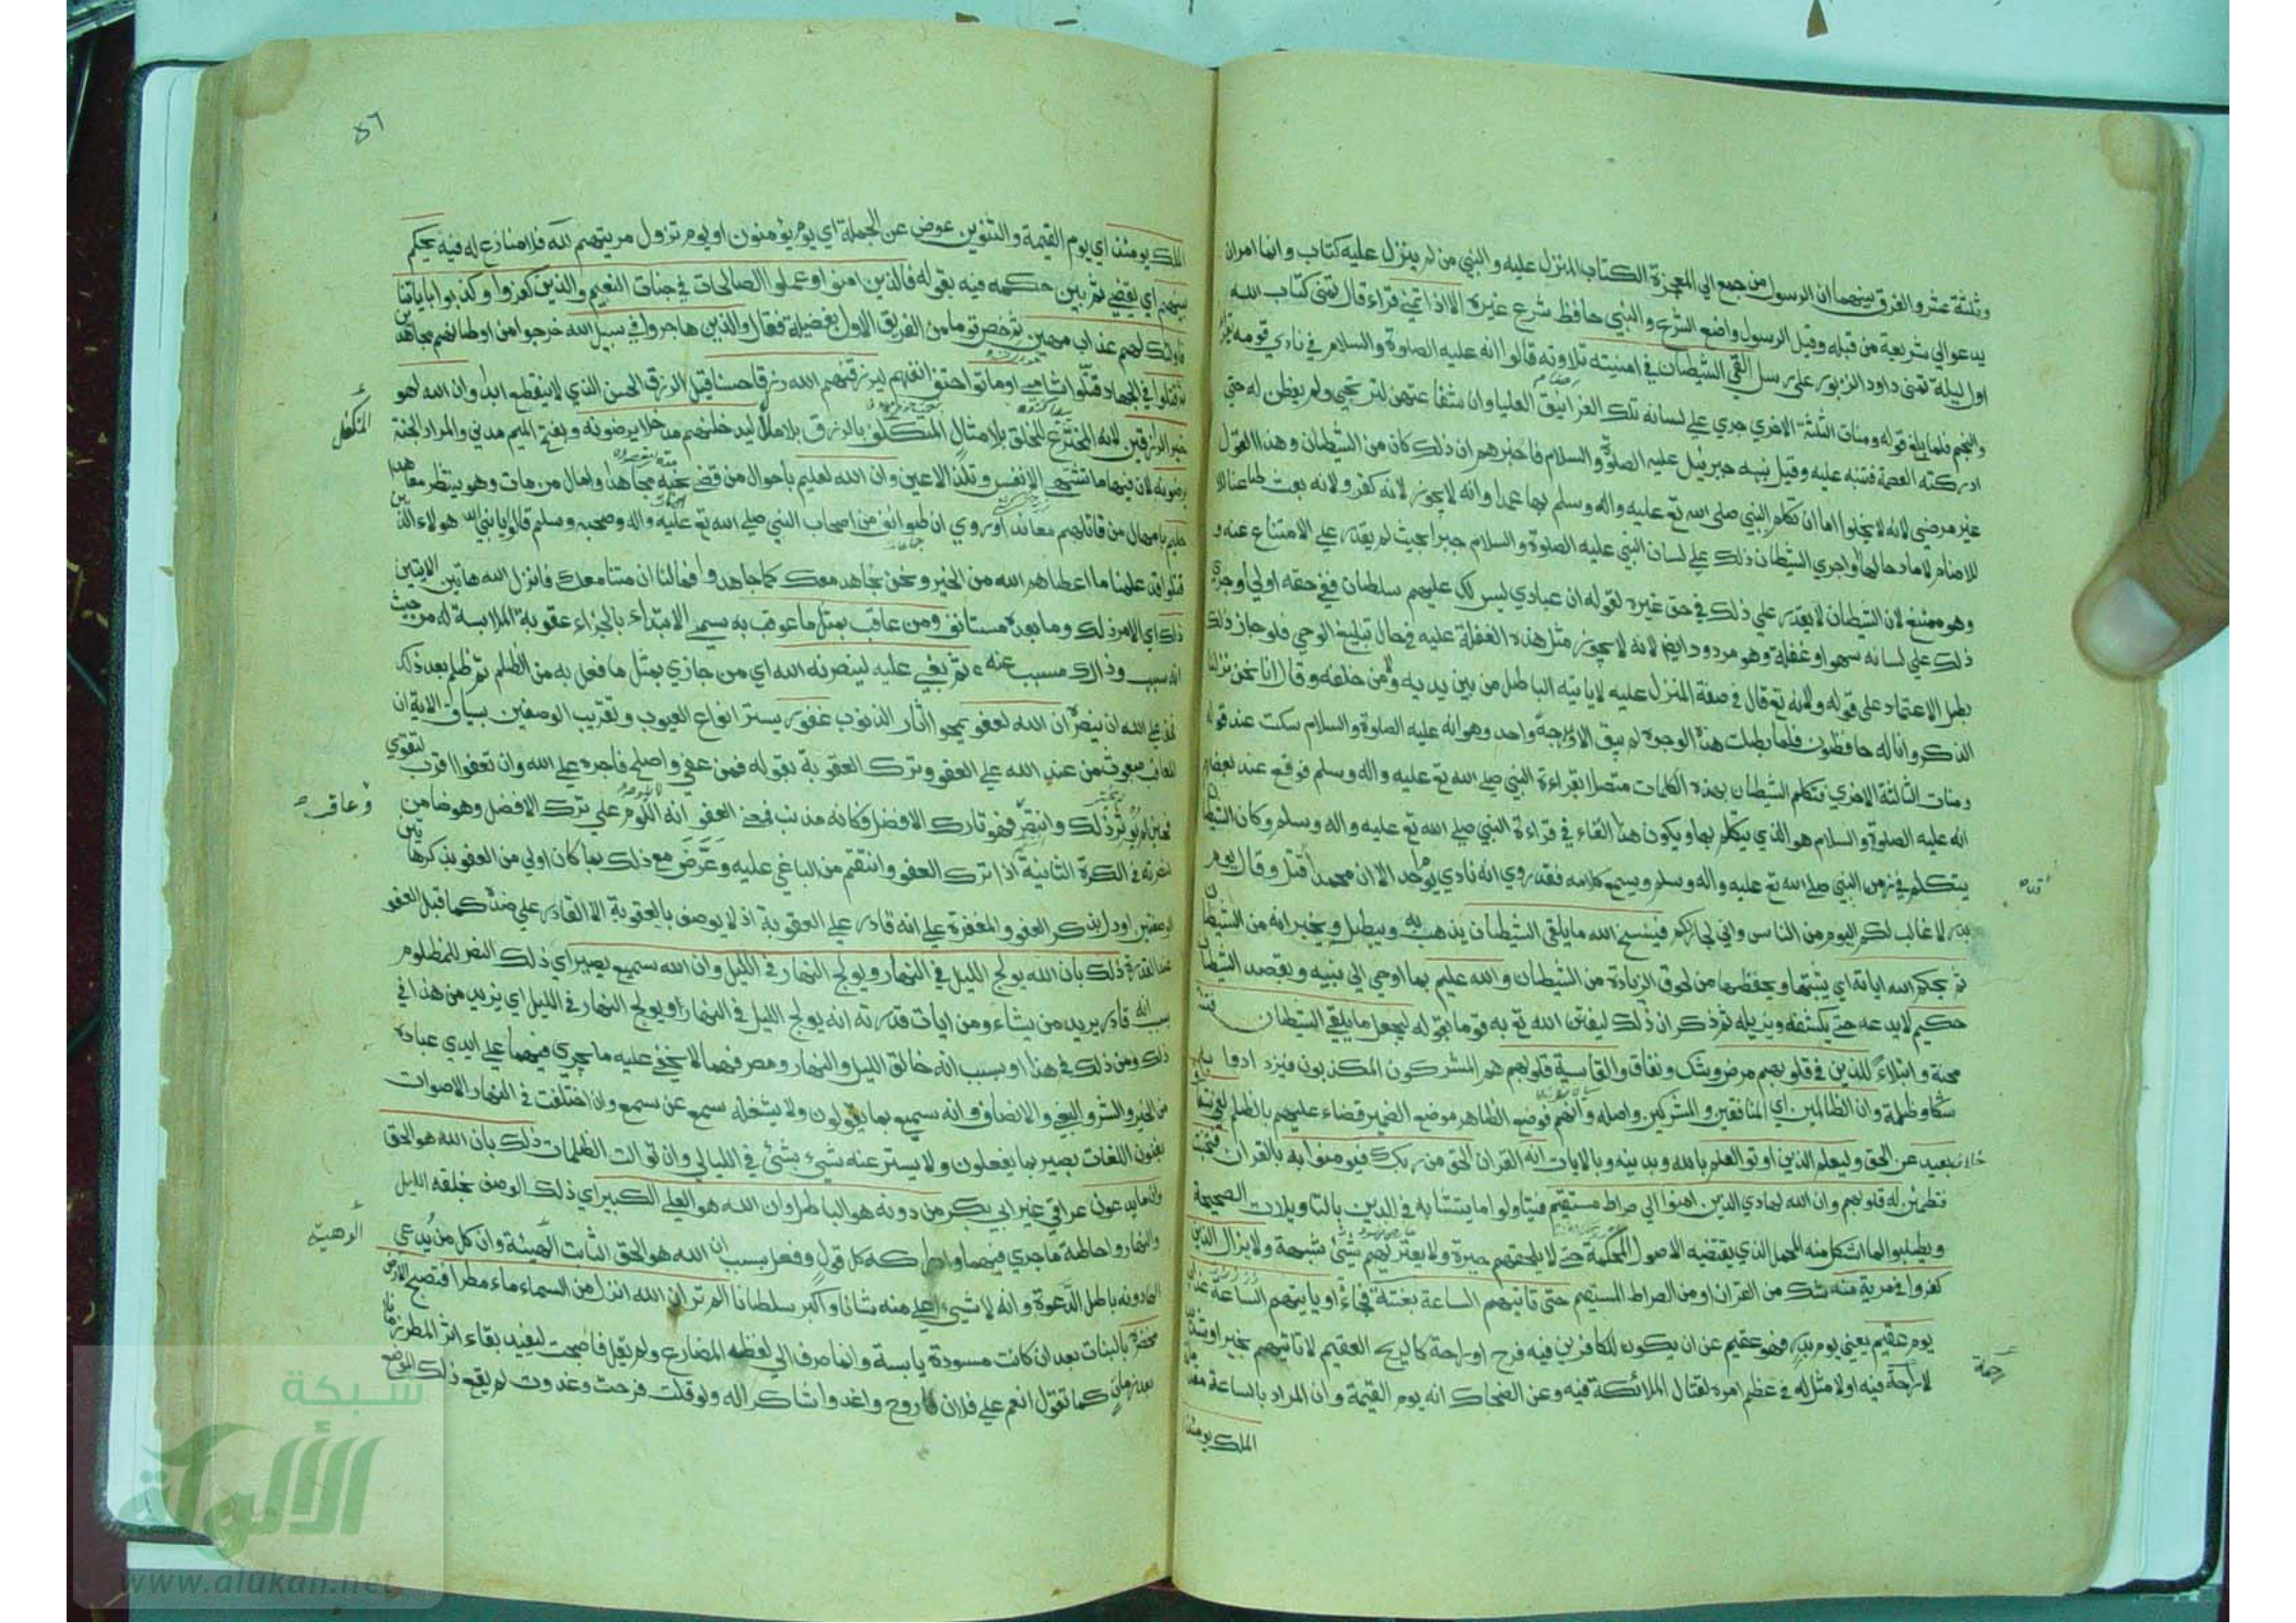 وثلثة عشر والفرق بينهما ان الرسول من جمع الي المعجزة الكتاب المنزل عليه والنبي من لم ينزل عليه كتاب وانما امر ان
يدعو الي شريعة من قبله وقيل الرسول واضع الشرع والنبي حافظ شرع غيره الا اذا تمني قراء قال تمني كتاب الله
اول ليلة تمني داود الزبور علي رسل القي الشيطان في امنيته تلاوته قالوا انه عليه الصلوة والسلام في نادي قومه يقرأ
والنجم فلما بلغ قوله ومنات الثلثة الاخري جري علي لسانه تلك الغرانيق العليا وان شفاعتهن لترتجي ولم يفطن له حتي
ادركته العصمة فتنبه عليه وقيل نبهه جبرئيل عليه الصلوة والسلام فاخبرهم ان ذلك كان من الشيطان وهذا القول
غير مرضي لانه لا يخلوا اما ان تكلم النبي صلي الله تع عليه واله وسلم بها عمدا وانه لا يجوز لانه كفر ولانه بعث طاعنا
للاصنام لا مادحا لها او اجري الشيطان ذلك علي لسان النبي عليه الصلوة والسلام جبرا بحيث لم يقدر علي الامتناع عنه
وهو ممتنع لان الشيطان لا يقدر علي ذلك في حق غيره لقوله ان عبادي ليس لك عليهم سلطان ففي حقه اولي او جري
ذلك علي لسانه سهوا وغفلة وهو مردود ايضا لانه لا يجوز مثل هذه الغفلة عليه في حال تبليغ الوحي فلو جاز ذلك
بطل الاعتماد علي قوله ولانه تع قال في صفة المنزل عليه لا ياتيه الباطل من بين يديه ولا من خلفه وقال انا نحن نزلنا
الذكر وانا له حافظون فلما بطلت هذه الوجوه لم يبق الا وجه واحد وهو انه عليه الصلوة والسلام سكت عند قوله
ومنات الثالثة الاخري فتكلم الشيطان بهذه الكلمات متصلا بقراءة النبي صلي الله تع عليه واله وسلم فوقع عند بعضهم
انه عليه الصلوة والسلام هو الذي يتكلم بها ويكون هذا القاء في قراءة النبي صلي الله تع عليه واله وسلم وكان الشيطان
يتكلم في زمن النبي صلي الله تع عليه واله وسلم ويسمع كلامه فقد روي انه نادي يوم احد الا ان محمدا قتل وقال يوم
بدر لا غالب لكم اليوم من الناس واني جار لكم فينسخ الله ما يلقي الشيطان يذهب به ويبطل ويخبر انه من الشيطان
ثم يحكم الله اياته اي يثبتها ويحفظها من لحوق الزيادة من الشيطان والله عليم بما اوحي الي نبيه وبقصد الشيطان
حكيم لا يدعه حتي يكشفه ويزيله ثم ذكر ان ذلك ليفتن الله تع به قوما بقوله ليجعل ما يلقي الشيطان فتنة
محنة وابتلاء للذين في قلوبهم مرض وشك ونفاق والقاسية قلوبهم هم المشركون المكذبون فيزدادوا به
شكا وظلمة وان الظالمين اي المنافقين والمشركين واصله وانهم فوضع الظاهر موضع الضمير قضاء عليهم بالظلم لفي شقاق
خلاف بعيد عن الحق وليعلم الذين اوتوا العلم بالله وبدينه وبالايات انه القران الحق من ربك فيؤمنوا به بالقران فتخبت
فتطمئن له قلوبهم وان الله لهادي الذين امنوا الي صراط مستقيم فيتاولوا ما يتشابه في الدين بالتاويلات الصحيحة
ويطلبوا لما اشكل منه المحمل الذي يقتضيه الاصول المحكمة حتي لا يلحقهم حيرة ولا يعتريهم شبهة ولا يزال الذين
كفروا في مرية منه شك من القران او من الصراط المستقيم حتي تاتيهم الساعة بغتة فجاءة او ياتيهم الساعة عذاب
يوم عقيم يعني يوم بدر فهو عقيم عن ان يكون للكافرين فيه فرح او راحة كالريح العقيم لا تاتيهم بخير او شدة
لا راحة فيه او لا مثل له في عظم امره لقتال الملائكة فيه وعن الضحاك انه يوم القيمة وان المراد بالساعة
الملك يومئذ
رحمة
٥٦
الملك يومئذ اي يوم القيمة والتنوين عوض عن الجملة اي يوم يؤمنون او يوم تزول مريتهم لله فلا منازع له فيه يحكم
بينهم اي يقضي ثم بين حكمه فيه بقوله فالذين امنوا وعملوا الصالحات في جنات النعيم والذين كفروا وكذبوا باياتنا
فاولئك لهم عذاب مهين ثم خص قوما من الفريق الاول بفضيلة فقال والذين هاجروا في سبيل الله خرجوا من اوطانهم مجاهدين
ثم قتلوا في الجهاد قتلوا شامي او ماتوا حتف انفهم ليرزقنهم الله رزقا حسنا قيل الرزق الحسن الذي لا ينقطع ابدا وان الله لهو
خير الرازقين لانه المخترع للخلق بلا مثال المتكفل بالرزق بلا ملال ليدخلنهم مدخلا يرضونه وبفتح الميم مدني والمراد الجنة
يرضونه لان فيها ما تشتهي الانفس وتلذ الاعين وان الله لعليم باحوال من قضي نحبه مجاهدا وامال من مات وهو ينتظر معاهدا
حليم بامهال من قاتلهم معاندا وروي ان طوائف من اصحاب النبي صلي الله تع عليه واله وصحبه وسلم قالوا يا نبي الله هولاء الذين
قتلوا قد علمنا ما اعطاهم الله من الخير ونحن نجاهد معك كما جاهدوا فما لنا ان متنا معك فانزل الله هاتين الايتين
ذلك اي الامر ذلك وما بعده مستانف ومن عاقب بمثل ما عوقب به سمي الابتداء بالجزاء عقوبة الملابسة له من حيث
انه سبب وذلك مسبب عنه ثم بغي عليه لينصرنه الله اي من جازي بمثل ما فعل به من الظلم ثم ظلم بعد ذلك
فحق علي الله ان ينصره ان الله لعفو يمحوا اثار الذنوب غفور يستر انواع العيوب وتقريب الوصفين بسياق الاية ان
المعاقب مبعوث من عند الله علي العفو وترك العقوبة بقوله فمن عفي واصلح فاجره علي الله وان تعفوا اقرب للتقوي
فحين لم يؤثر ذلك وانتصر فهو تارك الافضل فكانه مذنب فمعني العفو انه لا يلوم علي ترك الافضل وهو ضامن
لنصرته في الكرة الثانية اذا ترك العفو وانتقم من الباغي عليه وعرض مع ذلك بما كان اولي من العفو بذكر هاتين
الصفتين او دل بذكر العفو والمغفرة علي انه قادر علي العقوبة اذ لا يوصف بالعفو الا القادر علي ضده كما قيل العفو
عند القدرة ذلك بان الله يولج الليل في النهار ويولج النهار في الليل وان الله سميع بصير اي ذلك النصر للمظلوم
بسبب انه قادر يريد من يشاء ومن ايات قدرته انه يولج الليل في النهار ويولج النهار في الليل اي يزيد من هذا في
ذلك ومن ذلك في هذا او بسبب انه خالق الليل والنهار ومصرفهما لا يخفي عليه ما يجري فيهما علي ايدي عباده
من الخير والشر والبغي والانصاف وانه سميع بما يقولون ولا يشغله سمع عن سمع وان اختلفت في النهار الاصوات
بفنون اللغات بصير بما يفعلون ولا يستر عنه شيء بشئ في الليالي وان توالت الظلمات ذلك بان الله هو الحق
وان ما يدعون عراقي غير ابي بكر من دونه هو الباطل وان الله هو العلي الكبير اي ذلك الوصف بخلقه الليل
والنهار واحاطته بما يجري فيهما وادراكه كل قول وفعل بسبب ان الله هو الحق الثابت الهيته وان كل من يدعي
الها دونه باطل الدعوة وانه لا شيء اعلي منه شانا واكبر سلطانا الم تر ان الله انزل من السماء ماء مطرا فتصبح الارض
مخضرة بالنبات بعد ان كانت مسودة يابسة وانما صرف الي لفظ المضارع ولم يقل فاصبحت ليفيد بقاء اثر المطر زمانا
بعد زمان كما تقول انعم علي فلان فاروح واغدوا شاكرا له ولو قلت فرحت وغدوت لم يقع ذلك الموقع
المتكفل
وعاقب
الوهيته
شبكة
الألوكة
www.alukah.net